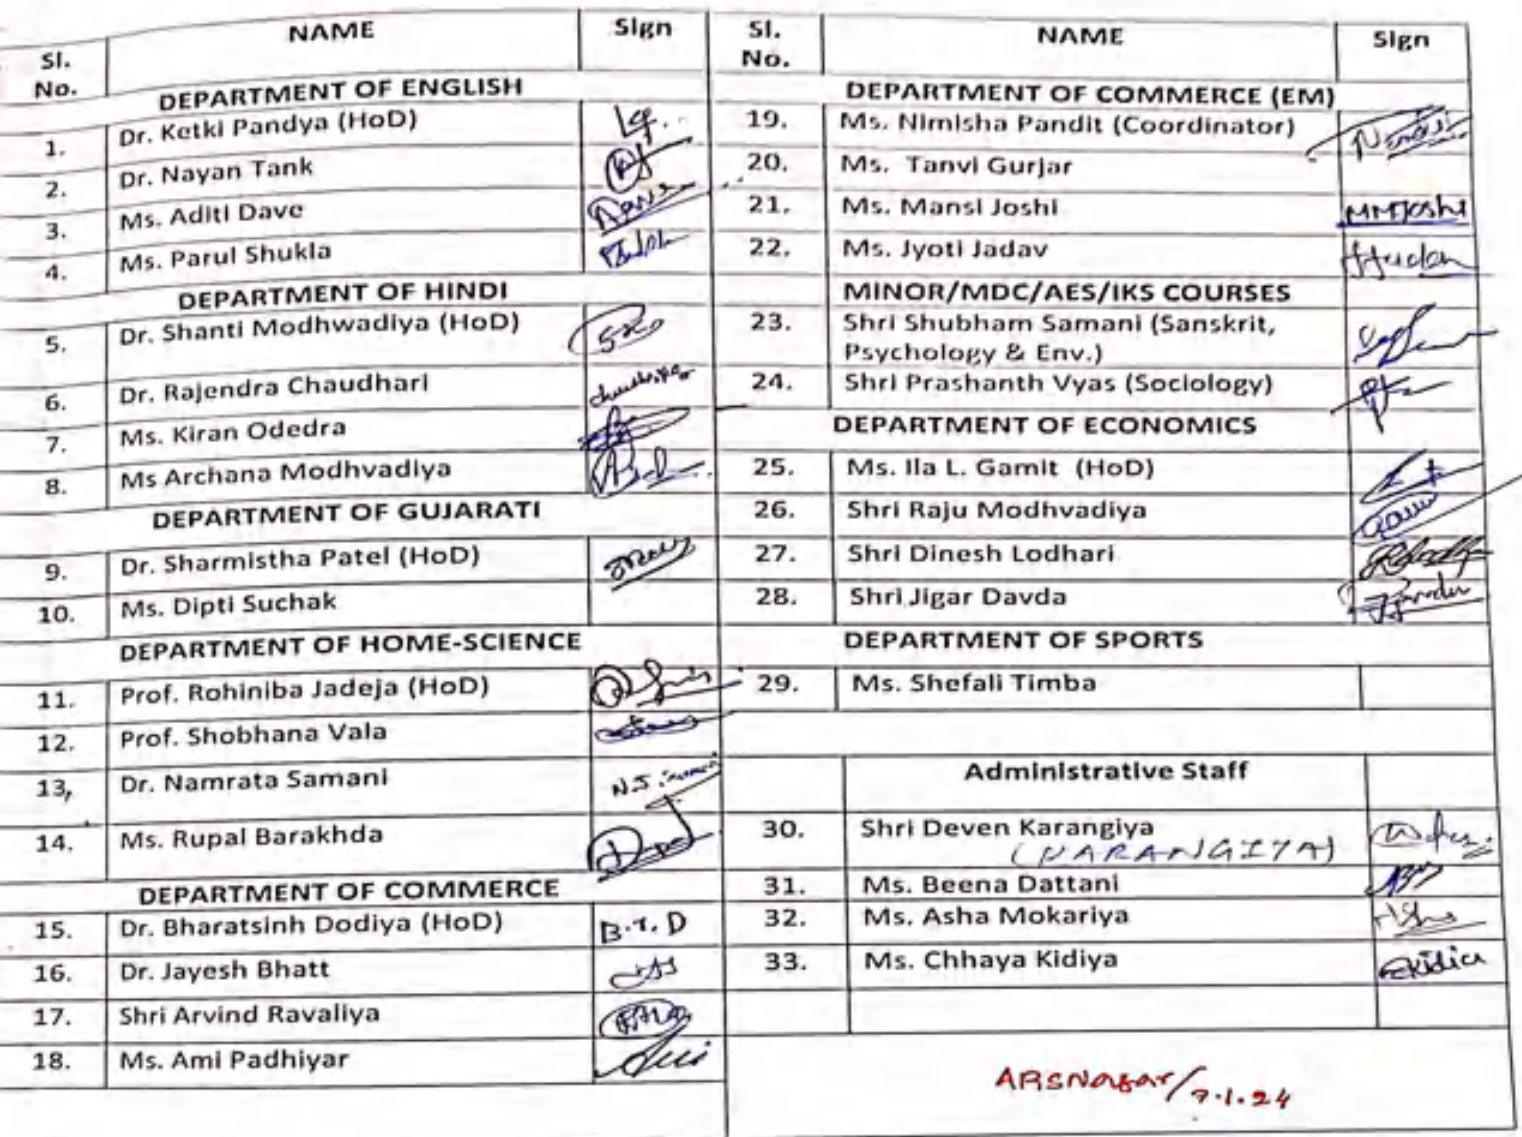 Sl. No. NAME Sign
DEPARTMENT OF ENGLISH
1. Dr. Ketki Pandya (HoD)
2. Dr. Nayan Tank
3. Ms. Aditi Dave
4. Ms. Parul Shukla
DEPARTMENT OF HINDI
5. Dr. Shanti Modhwadiya (HoD)
6. Dr. Rajendra Chaudhari
7. Ms. Kiran Odedra
8. Ms Archana Modhvadiya
DEPARTMENT OF GUJARATI
9. Dr. Sharmistha Patel (HoD)
10. Ms. Dipti Suchak
DEPARTMENT OF HOME-SCIENCE
11. Prof. Rohiniba Jadeja (HoD)
12. Prof. Shobhana Vala
13, Dr. Namrata Samani
14. Ms. Rupal Barakhda
DEPARTMENT OF COMMERCE
15. Dr. Bharatsinh Dodiya (HoD) B.T.D
16. Dr. Jayesh Bhatt
17. Shri Arvind Ravaliya
18. Ms. Ami Padhiyar
Sl. No. NAME Sign
DEPARTMENT OF COMMERCE (EM)
19. Ms. Nimisha Pandit (Coordinator)
20. Ms. Tanvi Gurjar
21. Ms. Mansi Joshi MMJoshi
22. Ms. Jyoti Jadav
MINOR/MDC/AES/IKS COURSES
23. Shri Shubham Samani (Sanskrit,
Psychology & Env.)
24. Shri Prashanth Vyas (Sociology)
DEPARTMENT OF ECONOMICS
25. Ms. Ila L. Gamit (HoD)
26. Shri Raju Modhvadiya
27. Shri Dinesh Lodhari
28. Shri Jigar Davda
DEPARTMENT OF SPORTS
29. Ms. Shefali Timba
Administrative Staff
30. Shri Deven Karangiya
31. Ms. Beena Dattani
32. Ms. Asha Mokariya
33. Ms. Chhaya Kidiya